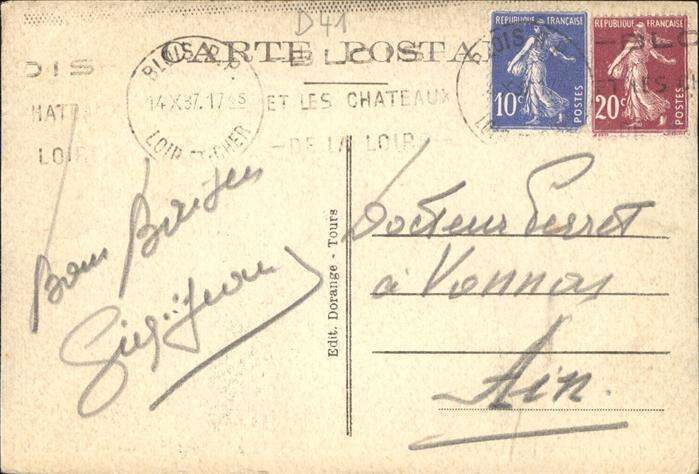 D41
CARTE POSTA
RÉPUBLIQUE FRANÇAISE
10c
POSTES
RÉPUBLIQUE FRANÇAISE
20c
POSTES
BLOIS R.P.
14 X 37. 17
LOIR-ET-CHER
BLOIS
ET LES CHATEAUX
DE LA LOIRE
OIS
HATEA
LOIR
Bons Baisers
Edit. Dorange - Tours
Docteur Perret
à Vonnas
Ain.